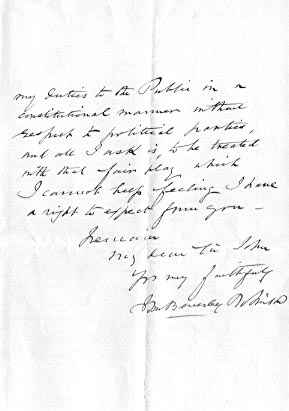 my duties to the Public in a
constitutional manner without
respect to political parties,
and all I ask is, to be treated
with that fair play which
I cannot help feeling I have
a right to expect from you –
I remain
My dear Sir John
Yrs very faithfully
Jno Beverley Robinson